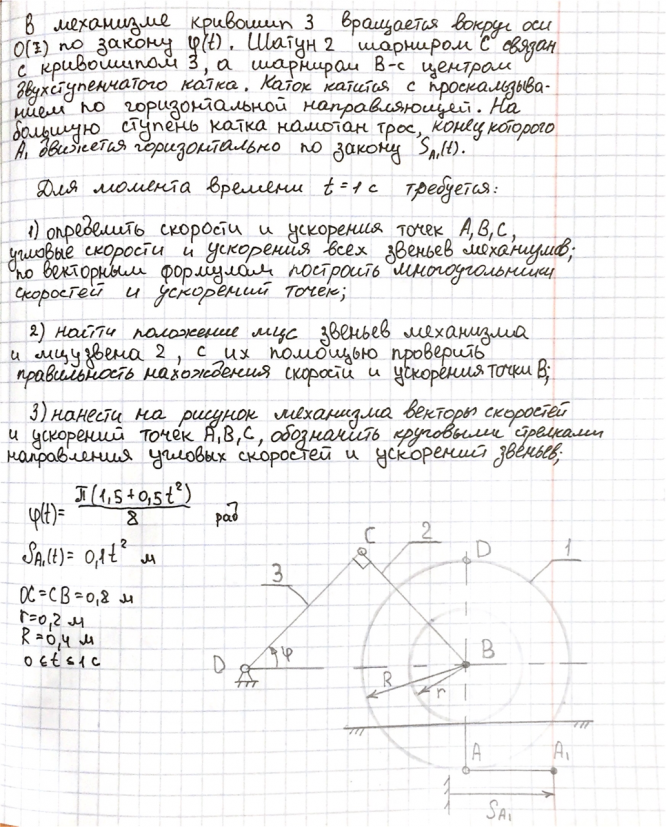 В механизме кривошип 3 вращается вокруг оси
O(Z) по закону φ(t). Шатун 2 шарниром C связан
с кривошипом 3, а шарниром B-с центром
двухступенчатого катка. Каток катится с проскальзыва-
нием по горизонтальной направляющей. На
большую ступень катка намотан трос, конец которого
A₁ движется горизонтально по закону S_A₁(t).
Для момента времени t=1 с требуется:
1) определить скорости и ускорения точек A, B, C,
угловые скорости и ускорения всех звеньев механизмов;
по векторным формулам построить многоугольники
скоростей и ускорений точек;
2) найти положение мцс звеньев механизма
и мцу звена 2, с их помощью проверить
правильность нахождения скорости и ускорения точки B;
3) нанести на рисунок механизма векторы скоростей
и ускорений точек A, B, C, обозначить круговыми стрелками
направления угловых скоростей и ускорений звеньев;
φ(t)= π(1,5+0,5t²)/8 рад
S_A₁(t)= 0,1t² м
OC=CB=0,8 м
r=0,2 м
R=0,4 м
0≤t≤1 с
C
2
D
1
3
O
φ
B
R
r
A
A₁
S_A₁